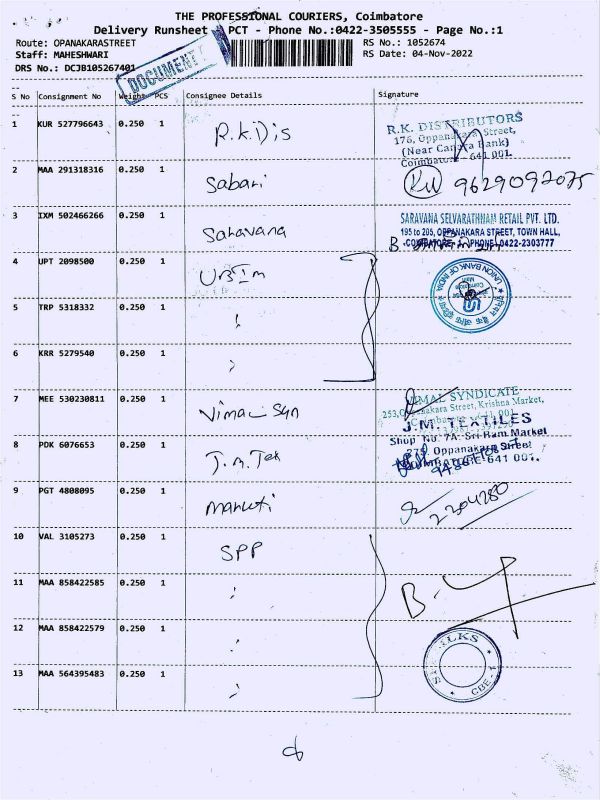 THE PROFESSIONAL COURIERS, Coimbatore
Delivery Runsheet PCT - Phone No.:0422-3505555 - Page No.:1
Route: OPANAKARASTREET RS No.: 1052674
Staff: MAHESHWARI RS Date: 04-Nov-2022
DRS No.: DCJB105267401
DOCUMENT
S No Consignment No Weight PCS Consignee Details Signature
1 KUR 527796643 0.250 1 R.K.Dis
R.K. DISTRIBUTORS
176, Oppanakara Street,
(Near Canara Bank)
Coimbatore - 641 001.
2 MAA 291318316 0.250 1 Sabari 9629092075
3 IXM 502466266 0.250 1 Saravana
SARAVANA SELVARATHNAM RETAIL PVT. LTD.
195 to 205, OPPANAKARA STREET, TOWN HALL,
COIMBATORE - 1. PHONE: 0422-2303777
4 UPT 2098500 0.250 1
UNION BANK OF INDIA
5 TRP 5318332 0.250 1
6 KRR 5279540 0.250 1
7 MEE 530230811 0.250 1 Vimal Syn
VIMAL SYNDICATE
253, Oppanakara Street, Krishna Market,
8 PDK 6076653 0.250 1 J.M.Tex
J.M. TEXTILES
Shop No. 7A, Sri Ram Market
Oppanakara Street
COIMBATORE-641 001.
9 PGT 4808095 0.250 1 Maruti 2204280
10 VAL 3105273 0.250 1 SPP
11 MAA 858422585 0.250 1
12 MAA 858422579 0.250 1
SILKS
CBE-1
13 MAA 564395483 0.250 1